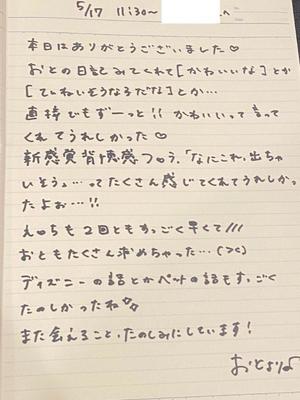 5/17 11:30～
本日はありがとうございました♡
おとの日記みてくれて[かわいいな]とか
[ていねいそうなろだな]とか…
直接でもずーっと!! かわいいって言って
くれてうれしかった♡
新感覚背徳感フロう、「なにこれ、出ちゃ
いそう。…ってたくさん感じてくれてうれしかっ
たよぉ…!!
えっちも2回ともすっごく早くて///
おともたくさん求めちゃった…(><)
ディズニーの話とかペットの話もすっごく
たのしかったね
また会えること、たのしみにしています!
おとより